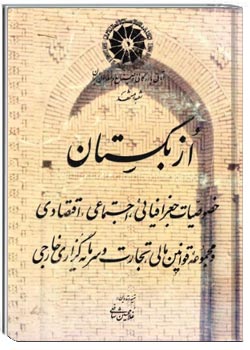 شعبه مشهد
اُزبکستان
خصوصیات جغرافیائی، اجتماعی، اقتصادی
و مجموعه قوانین مالی، تجارت و سرمایه گزاری خارجی